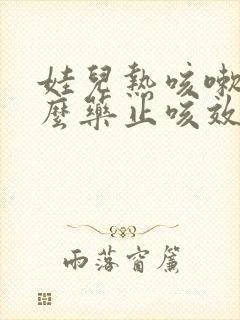 娃兒熱咳嗽
麼藥止咳效
雨落窗簾